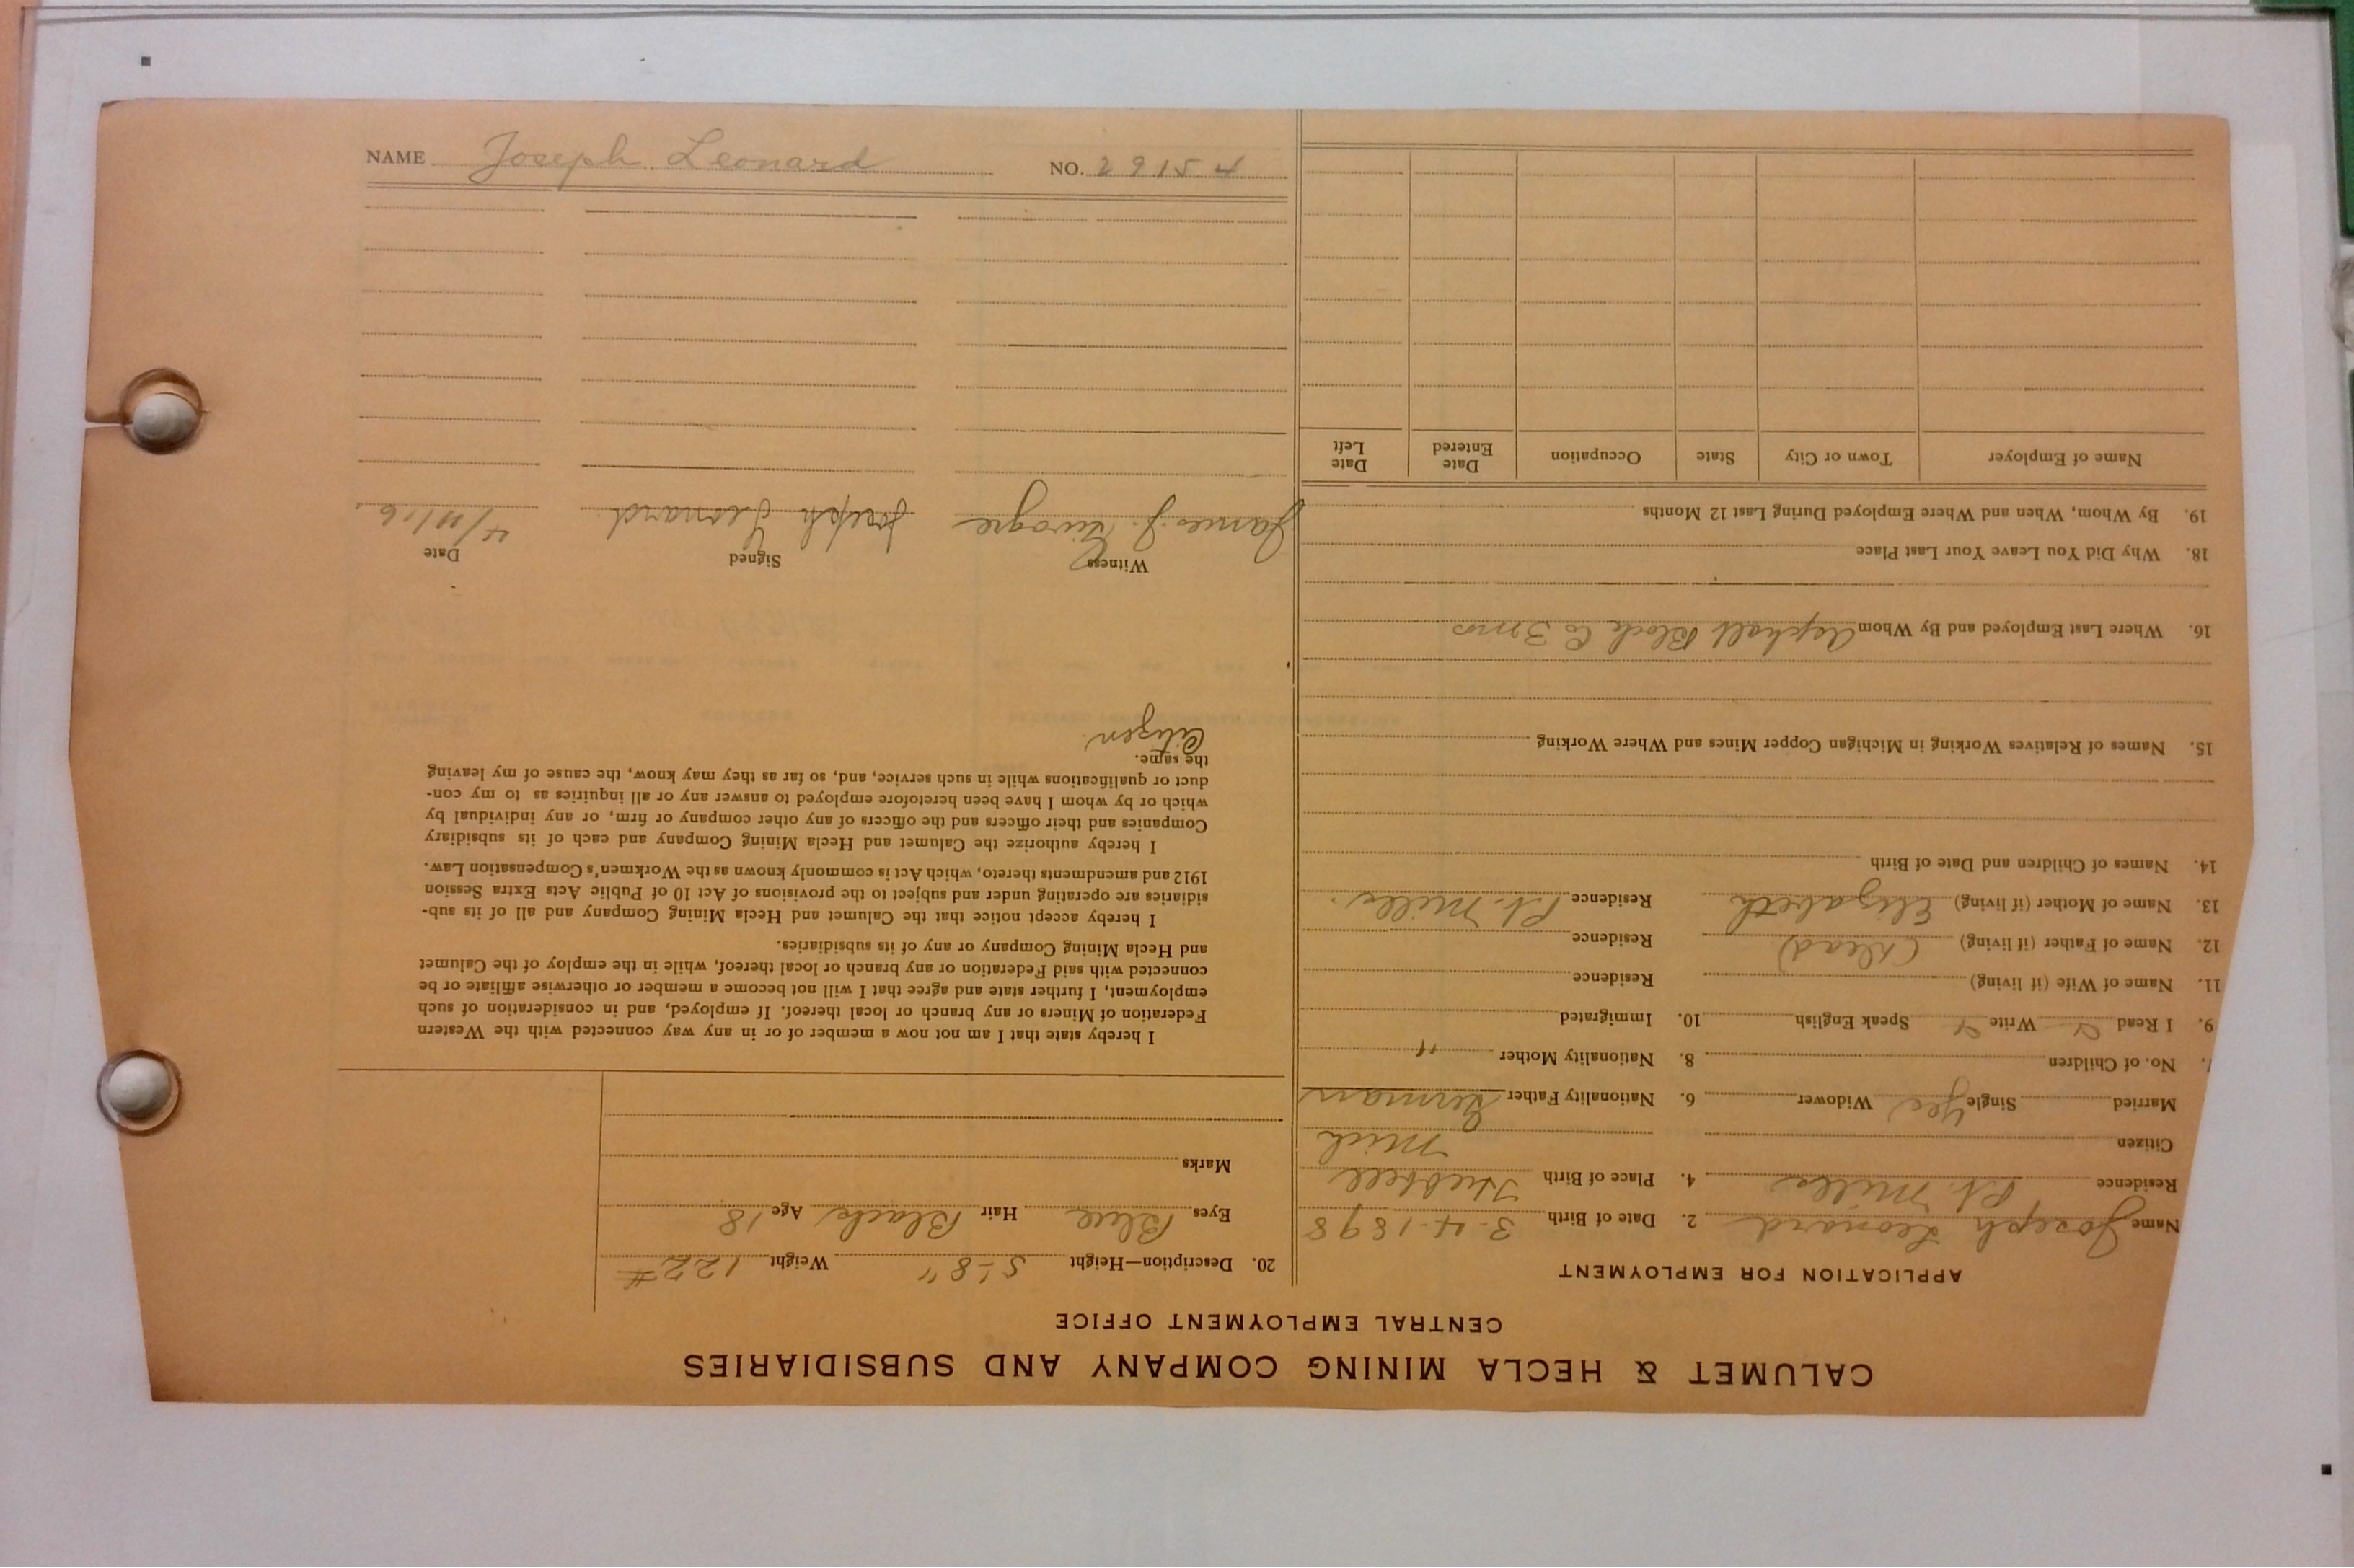 CALUMET & HECLA MINING COMPANY AND SUBSIDIARIES
CENTRAL EMPLOYMENT OFFICE
APPLICATION FOR EMPLOYMENT
Name Joseph Leonard 2. Date of Birth 3-4-1898
Residence Pt. Mills 4. Place of Birth Hubbell
Citizen Mich
Married Single Yes Widower 6. Nationality Father German
7. No. of Children 8. Nationality Mother "
9. I Read Write Speak English 10. Immigrated
11. Name of Wife (if living) Residence
12. Name of Father (if living) (dead) Residence
13. Name of Mother (if living) Elizabeth Residence Pt. Mills
14. Names of Children and Date of Birth
15. Names of Relatives Working in Michigan Copper Mines and Where Working
16. Where Last Employed and By Whom Asphalt Block Co 3 mos
18. Why Did You Leave Your Last Place
19. By Whom, When and Where Employed During Last 12 Months
Name of Employer Town or City State Occupation Date Entered Date Left
20. Description—Height 5'-8" Weight 122#
Eyes Blue Hair Black Age 18
Marks
I hereby state that I am not now a member of or in any way connected with the Western
Federation of Miners or any branch or local thereof. If employed, and in consideration of such
employment, I further state and agree that I will not become a member or otherwise affiliate or be
connected with said Federation or any branch or local thereof, while in the employ of the Calumet
and Hecla Mining Company or any of its subsidiaries.
I hereby accept notice that the Calumet and Hecla Mining Company and all of its sub-
sidiaries are operating under and subject to the provisions of Act 10 of Public Acts Extra Session
1912 and amendments thereto, which Act is commonly known as the Workmen's Compensation Law.
I hereby authorize the Calumet and Hecla Mining Company and each of its subsidiary
Companies and their officers and the officers of any other company or firm, or any individual by
which or by whom I have been heretofore employed to answer any or all inquiries as to my con-
duct or qualifications while in such service, and, so far as they may know, the cause of my leaving
the same.
Citizen.
Witness Signed Date
James J. Joseph Leonard. 4/11/16.
NAME Joseph Leonard NO. 29154